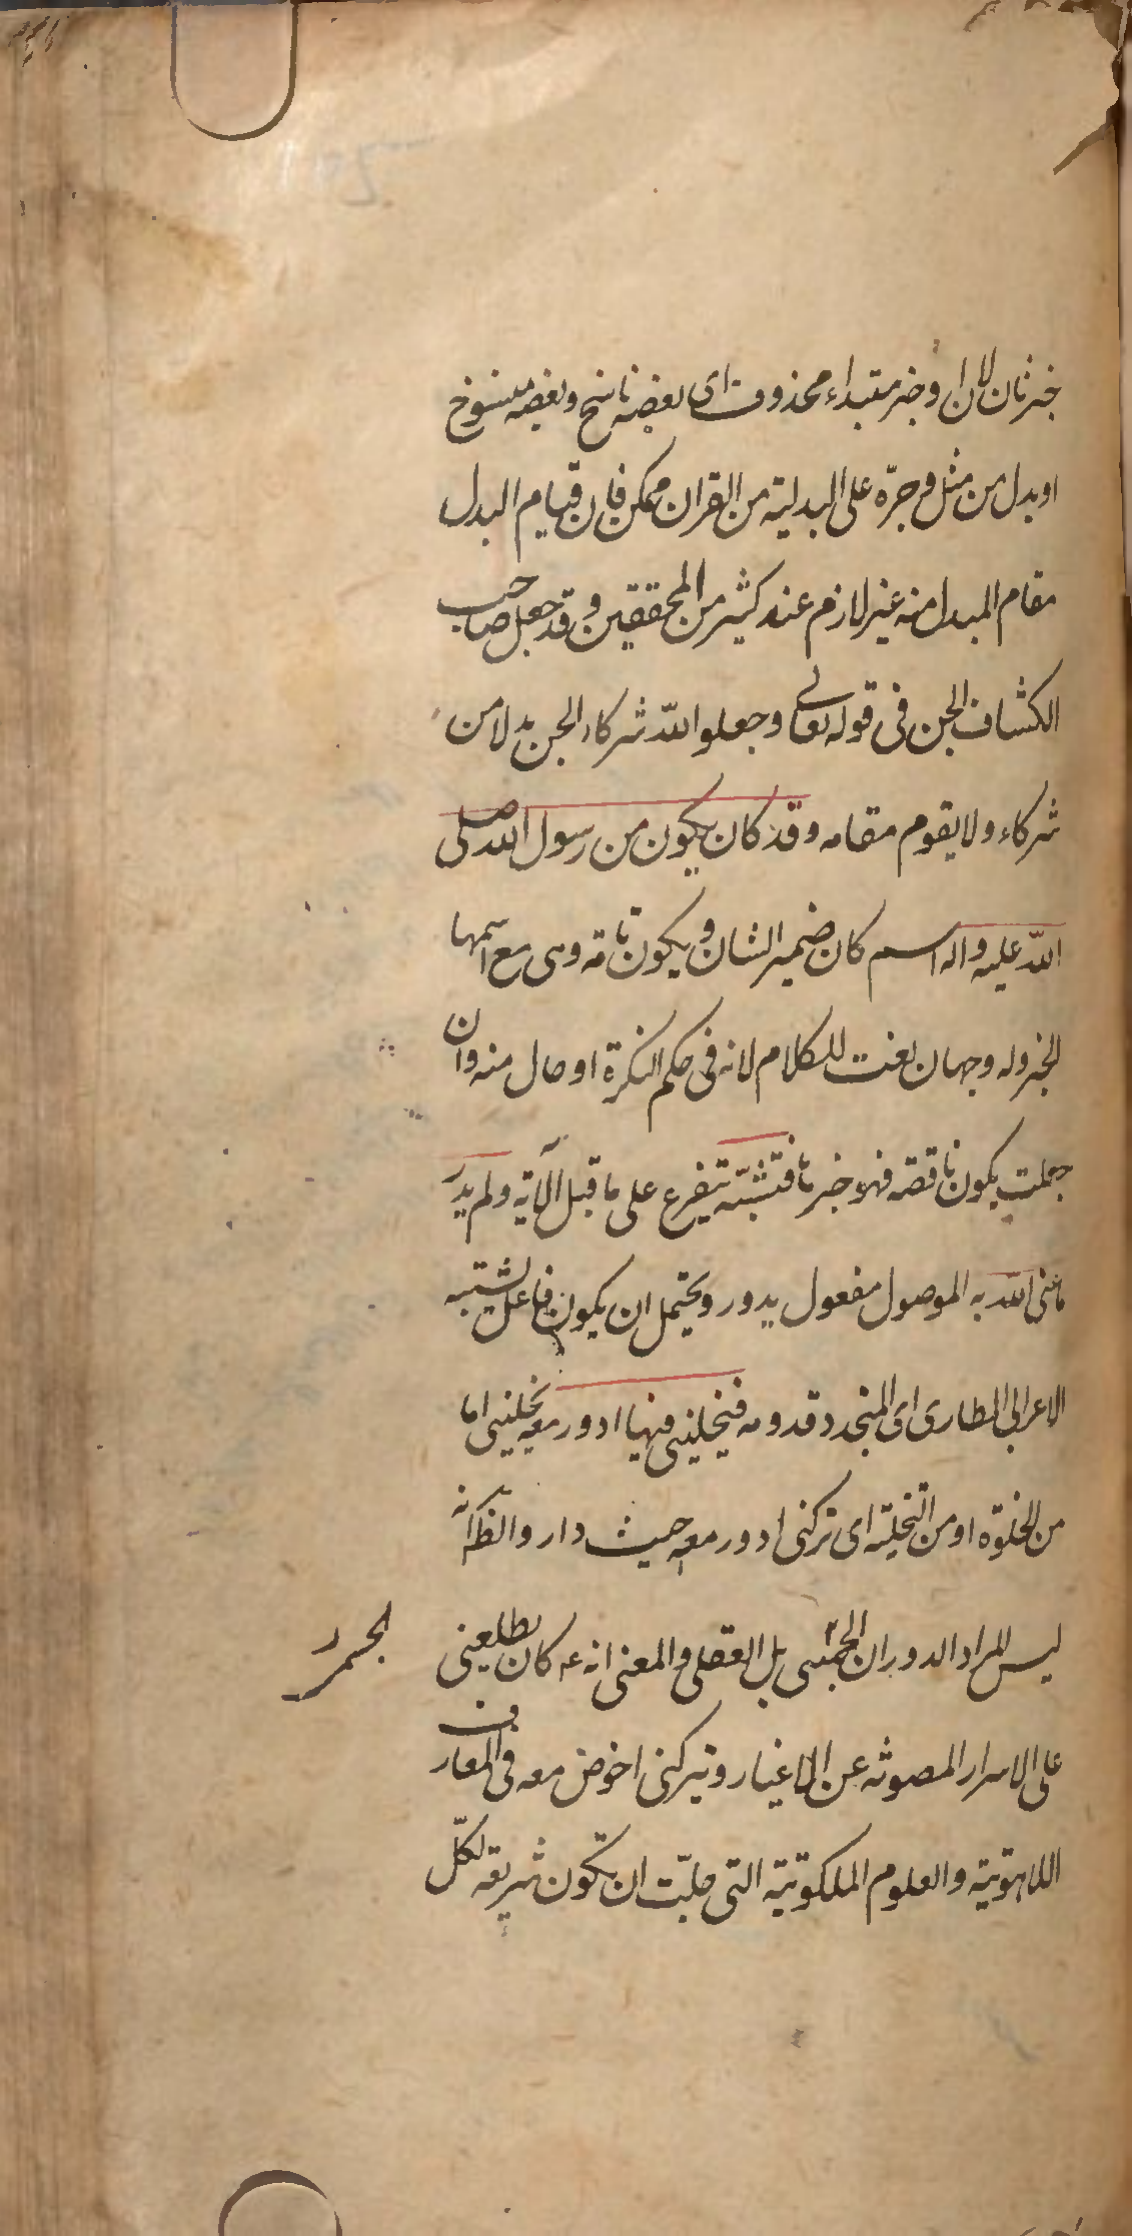 خبر ثان لان او خبر مبتداء محذوف اى بعضه ناسخ وبعضه منسوخ
او بدل من مثل و جرّه على البدلية من القران ممكن فان قيام البدل
مقام المبدل منه غير لازم عند كثير من المحققين و قد جعل صاحب
الكشاف الجن فى قوله تعالى وجعلوا لله شركاء الجن بدلا من
شركاء ولا يقوم مقامه وقد كان يكون من رسول الله صلى
الله عليه واله اسم كان ضمير الشان و يكون تامة وهى مع اسمها
الخبر وله وجهان نعت للكلام لانه فى حكم النكرة او حال منه وان
جعلت يكون ناقصة فهو خبرها فتشبّه تيفرع على ما قبل الآية ولم يدر
ما عنى الله به الموصول مفعول يدور ويحتمل ان يكون فاعل يشتبه
الاعرابى الطارى اى المتجدد قدومه فيخلينى فيها ادور معه يخلينى اما
من الخلوّة او من التخلية اى تركنى ادور معه حيث دار والظ انه
ليس المراد الدوران الجسمى بل العقلى و المعنى انه ع كان يطلعنى
الجسمى ر
على الاسرار المصونه عن الاغيار ويتركنى اخوض معه فى المعارف
اللاهوتية والعلوم الملكوتية التى جلّت ان تكون شريعة لكلّ